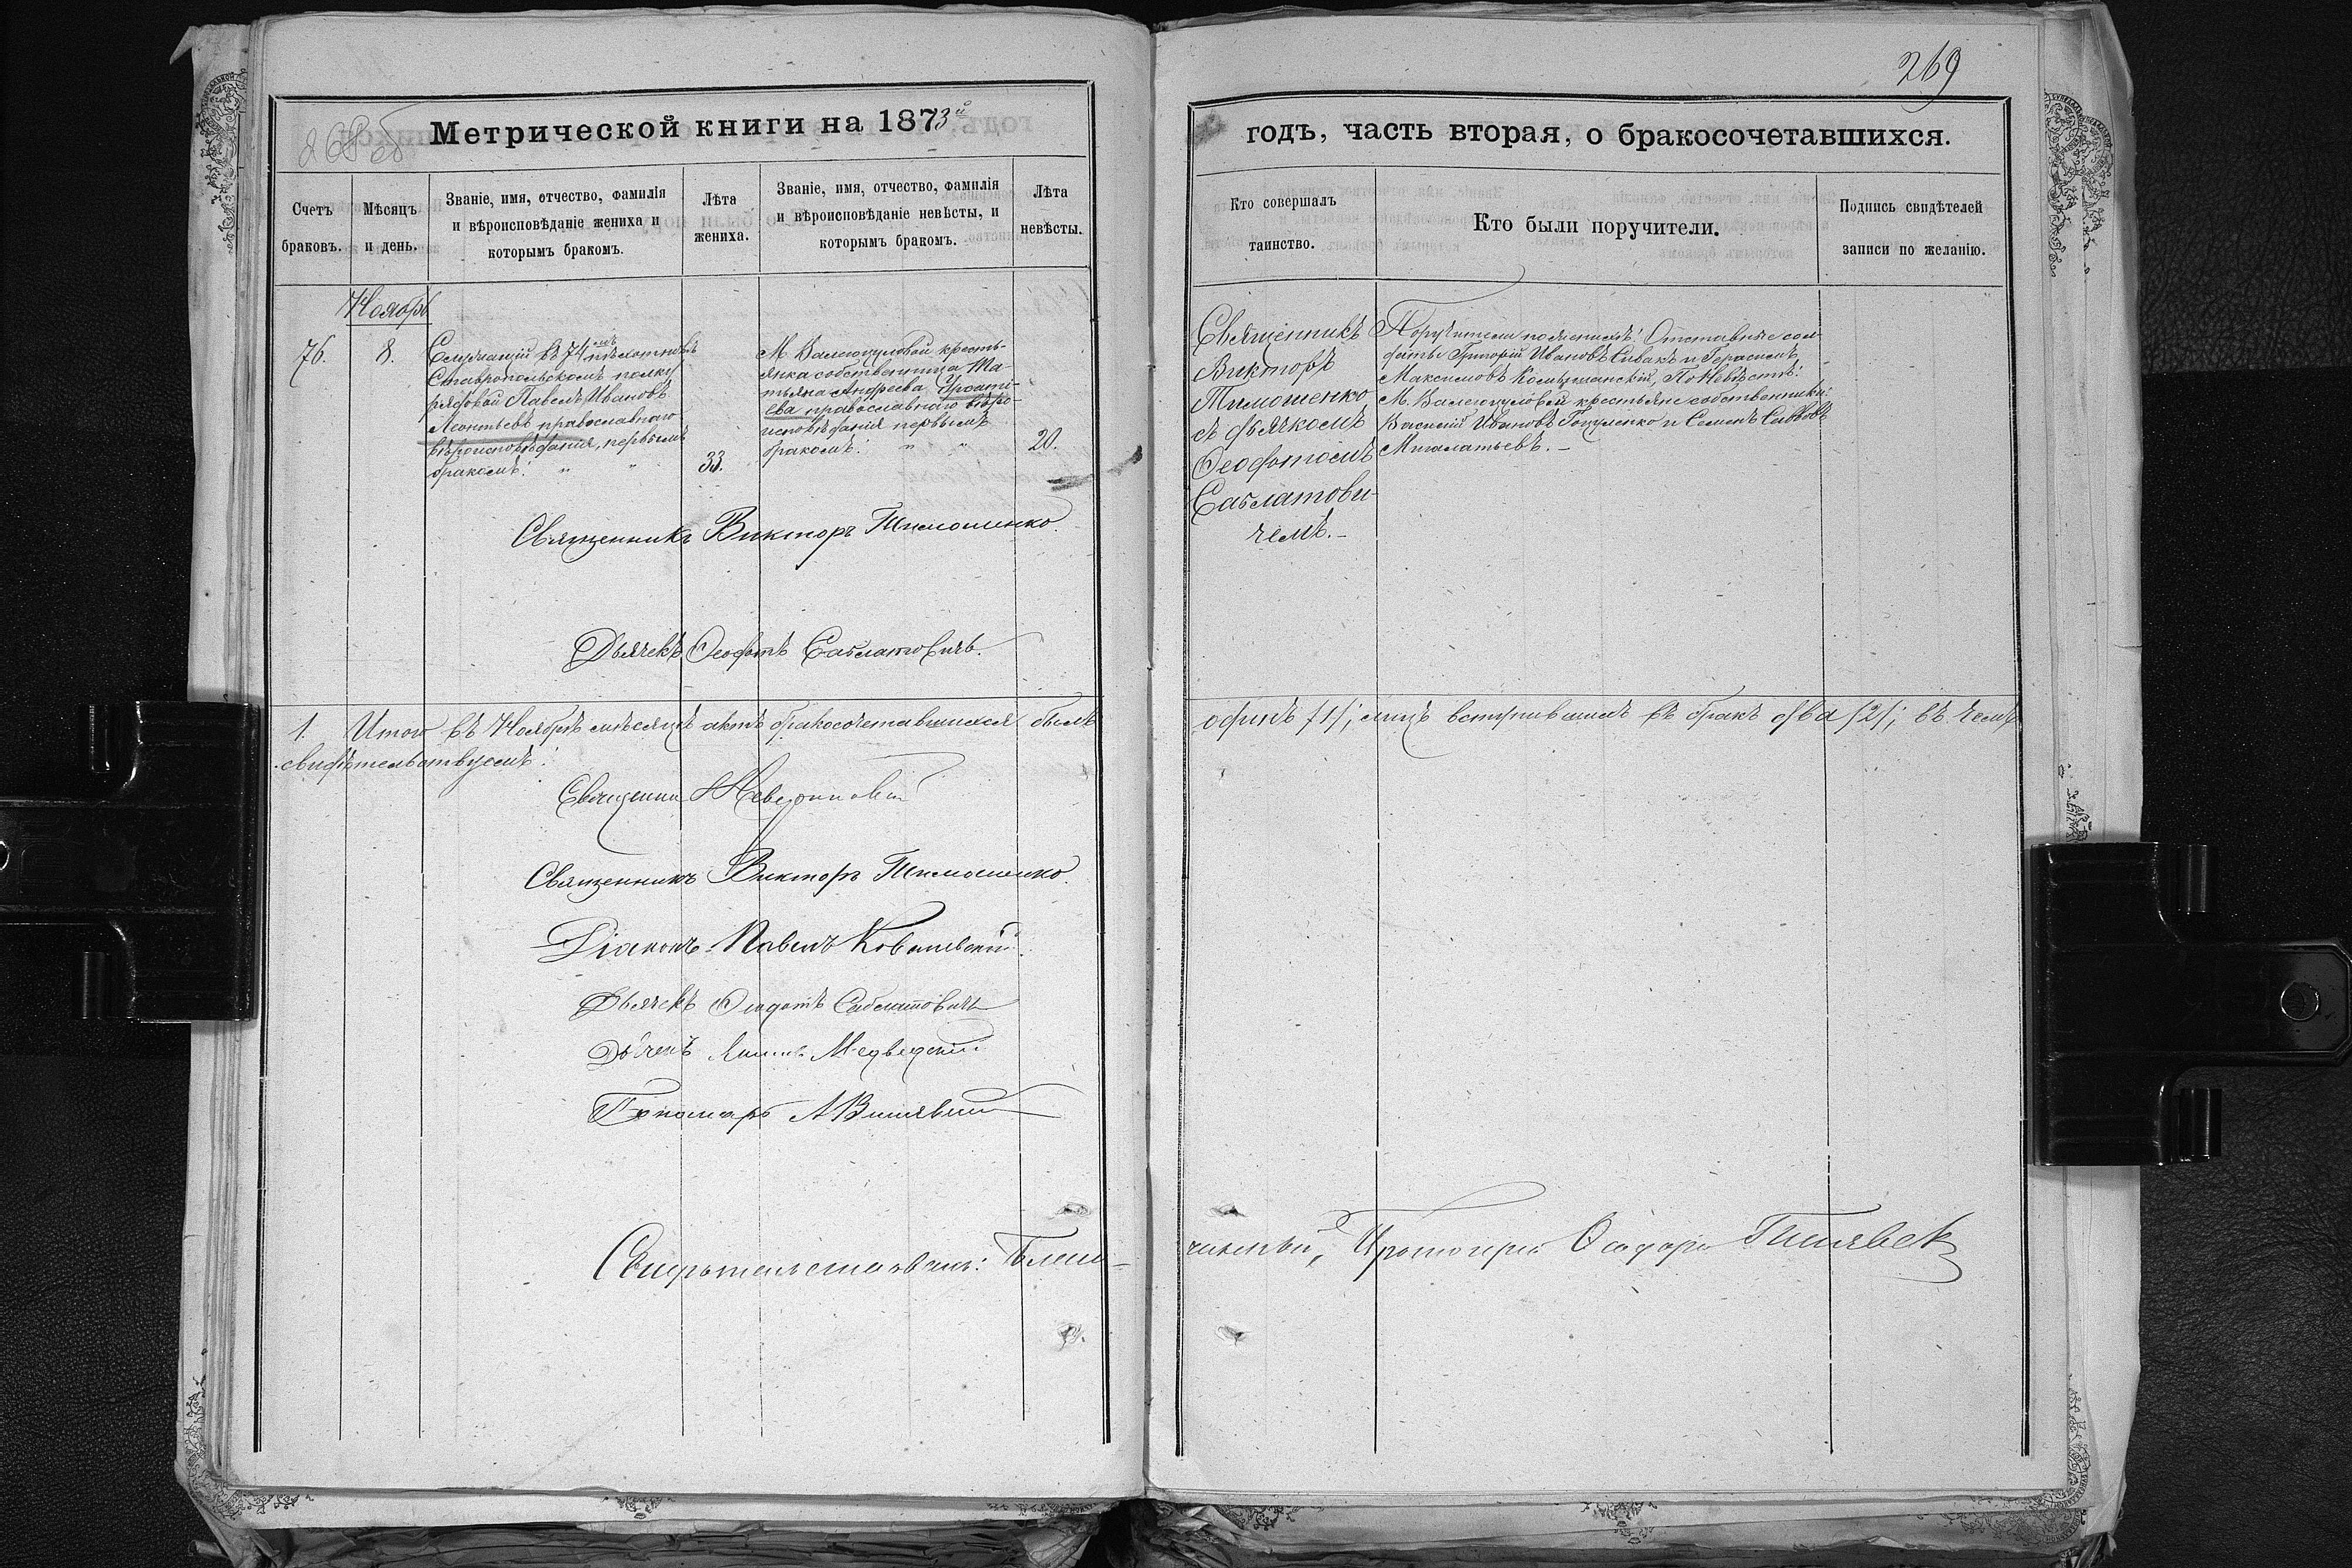 269
268 об
Метрической книги на 1873й
годъ, часть вторая, о бракосочетавшихся.
Счетъ браковъ.
Мѣсяцъ и день.
Званіе, имя, отчество, фамилія
и вѣроисповѣданіе жениха и
которымъ бракомъ.
Лѣта жениха.
Званіе, имя, отчество, фамилія
и вѣроисповѣданіе невѣсты, и
которымъ бракомъ.
Лѣта невѣсты.
Кто совершалъ
таинство.
Кто были поручители.
Подпись свидѣтелей
записи по желанію.
Ноябрь
76.
8.
Служащій въ 74мъ пѣхотномъ
Ставропольскомъ полку
рядовой Павелъ Ивановъ
Леонтьевъ православнаго
вѣроисповѣданія, первымъ
бракомъ. " "
33.
М. Валегоцуловой кресть-
янка собственница Та-
тьяна Андреева
православнаго вѣро-
исповѣданія первымъ
бракомъ. " "
20.
Священникъ
Викторъ
Тимошенко
съ дьячкомъ
Ѳеодотомъ
Саблатови-
чемъ.-
Поручители по женихѣ: Отставные сол-
даты Григорій Ивановъ Сивакъ и Герасимъ
Максимовъ По Невѣстѣ:
М. Валегоцуловой крестьяне собственники:
Василій Ивановъ и Семенъ Саввовъ
Мигалатьевъ.-
Священникъ Викторъ Тимошенко.
Дьячекъ Ѳеодотъ Саблатовичъ.
1. Итого въ Ноябрѣ мѣсяцѣ актъ бракосочетавшихся былъ одинъ /1/; лицъ вступившихъ въ бракъ два /2/; въ чемъ
свидѣтельствуемъ:
Священникъ
Священникъ Викторъ Тимошенко.
Діаконъ Павелъ Ковалевскій.
Дьячекъ Ѳеодотъ Саблатовичъ
Дьячекъ Медведскій
Пономарь А
Свидѣтельствовалъ: Благо-
чинный, Протоіерей Ѳеодоръ